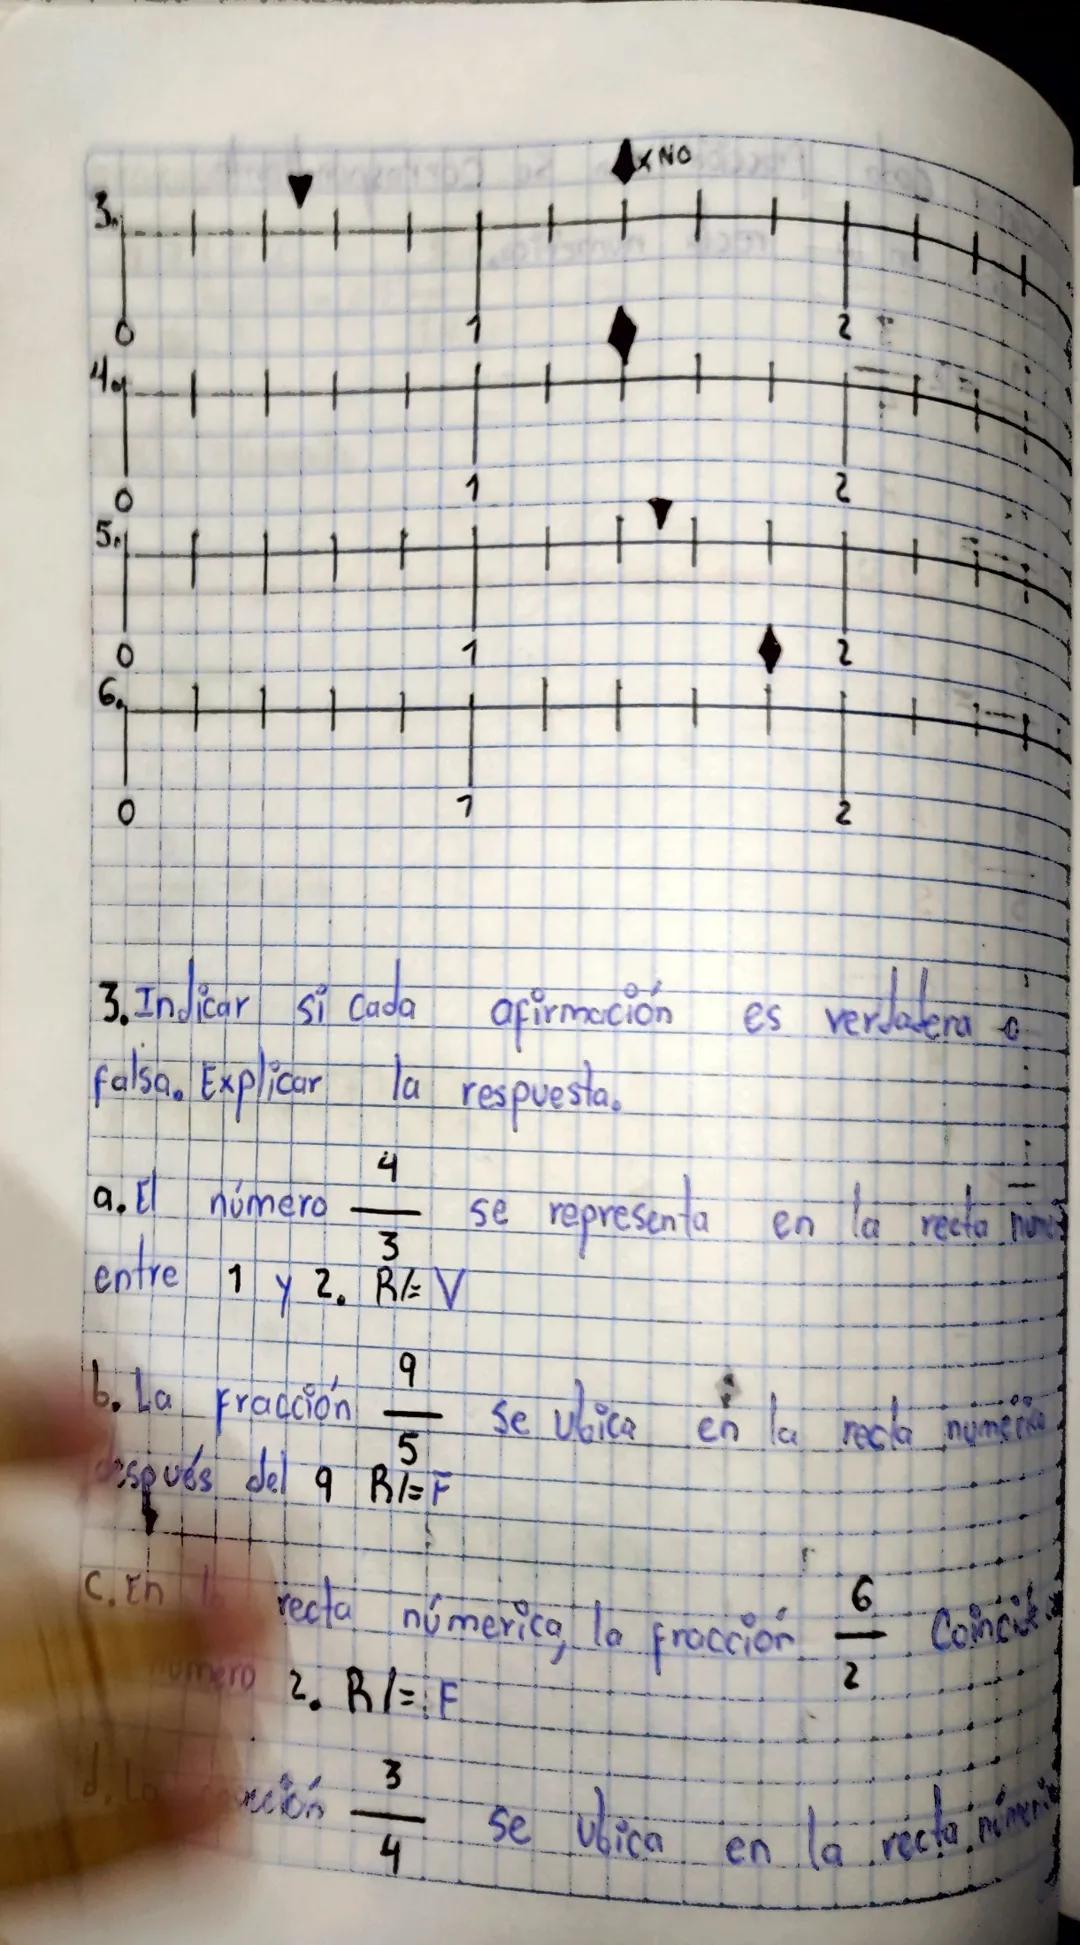 x NO
3.
0 1 2
4.
0 1 2
5.
0 1 2
6.
0 1 2
3. Indicar si cada afirmación es verdadera o
falsa. Explicar la respuesta.
a. El número 4/3 se representa en la recta
entre 1 y 2. R/= V
b. La fracción 9/5 se ubica en la recta
después del 9 R/= F
c. En la recta númerica, la fracción 6/2
número 2. R/= F
d. La fracción 3/4 se ubica en la recta